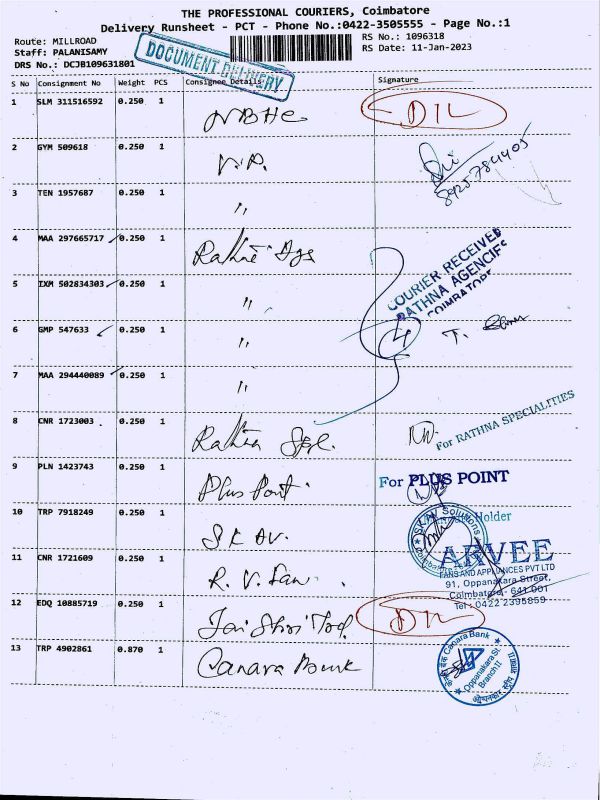 THE PROFESSIONAL COURIERS, Coimbatore
Delivery Runsheet - PCT - Phone No.:0422-3505555 - Page No.:1
Route: MILLROAD
Staff: PALANISAMY
DRS No.: DCJB109631801
DOCUMENT DELIVERY
RS No.: 1096318
RS Date: 11-Jan-2023
S No Consignment No Weight PCS Consignee Details Signature
1 SLM 311516592 0.250 1 NBHC DIL
2 GYM 509618 0.250 1 8925784405
3 TEN 1957687 0.250 1 "
4 MAA 297665717 0.250 1 Rathna Ags
COURIER RECEIVED
RATHNA AGENCIES
COIMBATORE
5 IXM 502834303 0.250 1 "
6 GMP 547633 0.250 1 " 4
7 MAA 294440089 0.250 1 "
8 CNR 1723003 0.250 1 Rathna Spl. For RATHNA SPECIALITIES
9 PLN 1423743 0.250 1 Plus Point For PLUS POINT
10 TRP 7918249 0.250 1 S K AV. Holder
ARVEE
FANS AND APPLIANCES PVT LTD
91, Oppanakara Street,
Coimbatore - 641 001
Tel : 0422 2395859
11 CNR 1721609 0.250 1 R. V. Fan
12 EDQ 10885719 0.250 1 Jai Shri DIL
13 TRP 4902861 0.870 1 Canara Bank
Canara Bank
Oppanakara St.
Branch II